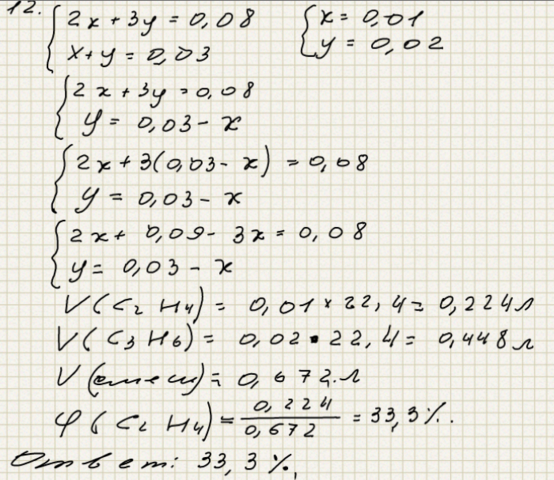 12. { 2x + 3y = 0,08
x + y = 0,03
{ x = 0,01
y = 0,02
{ 2x + 3y = 0,08
y = 0,03 - x
{ 2x + 3(0,03 - x) = 0,08
y = 0,03 - x
{ 2x + 0,09 - 3x = 0,08
y = 0,03 - x
V(C₂H₄) = 0,01 × 22,4 = 0,224 л
V(C₃H₆) = 0,02 • 22,4 = 0,448 л
V(смеси) = 0,672 л
φ(C₂H₄) = 0,224 / 0,672 = 33,3 %.
Ответ: 33,3 %,